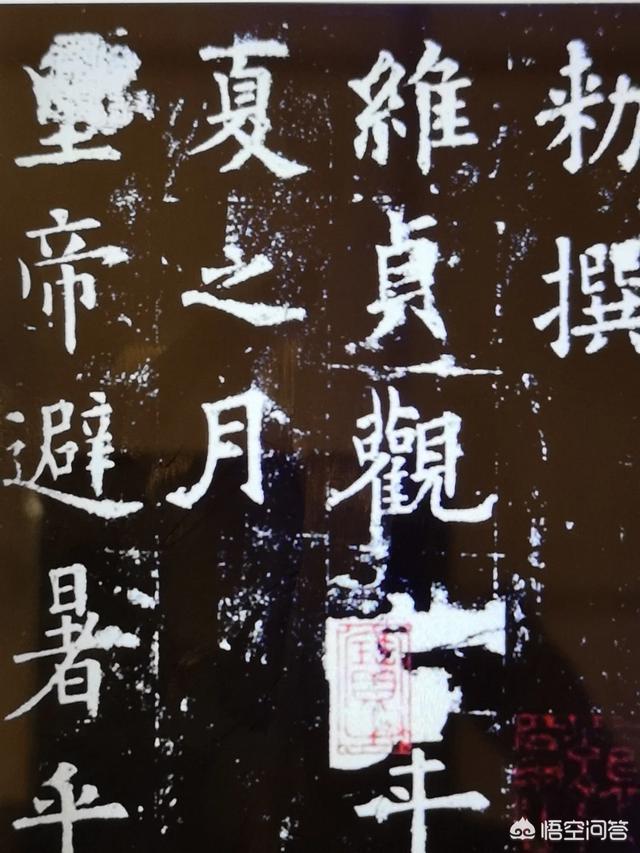 勑撰
維貞觀年
夏之月
皇帝避暑乎
悟空问答